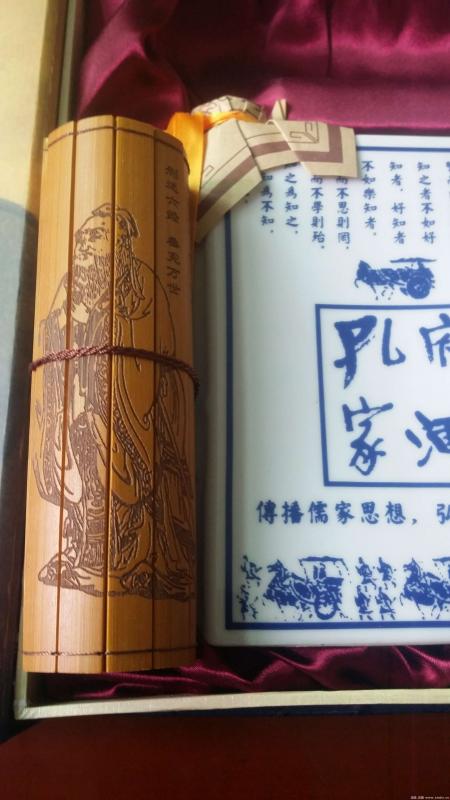 刪述六經 垂憲万世
知之者不如好
知者，好知者
不如樂知者。
而不思則罔，
而不學則殆。
之為知之，
為不知，
孔府
家酒
傳播儒家思想，弘